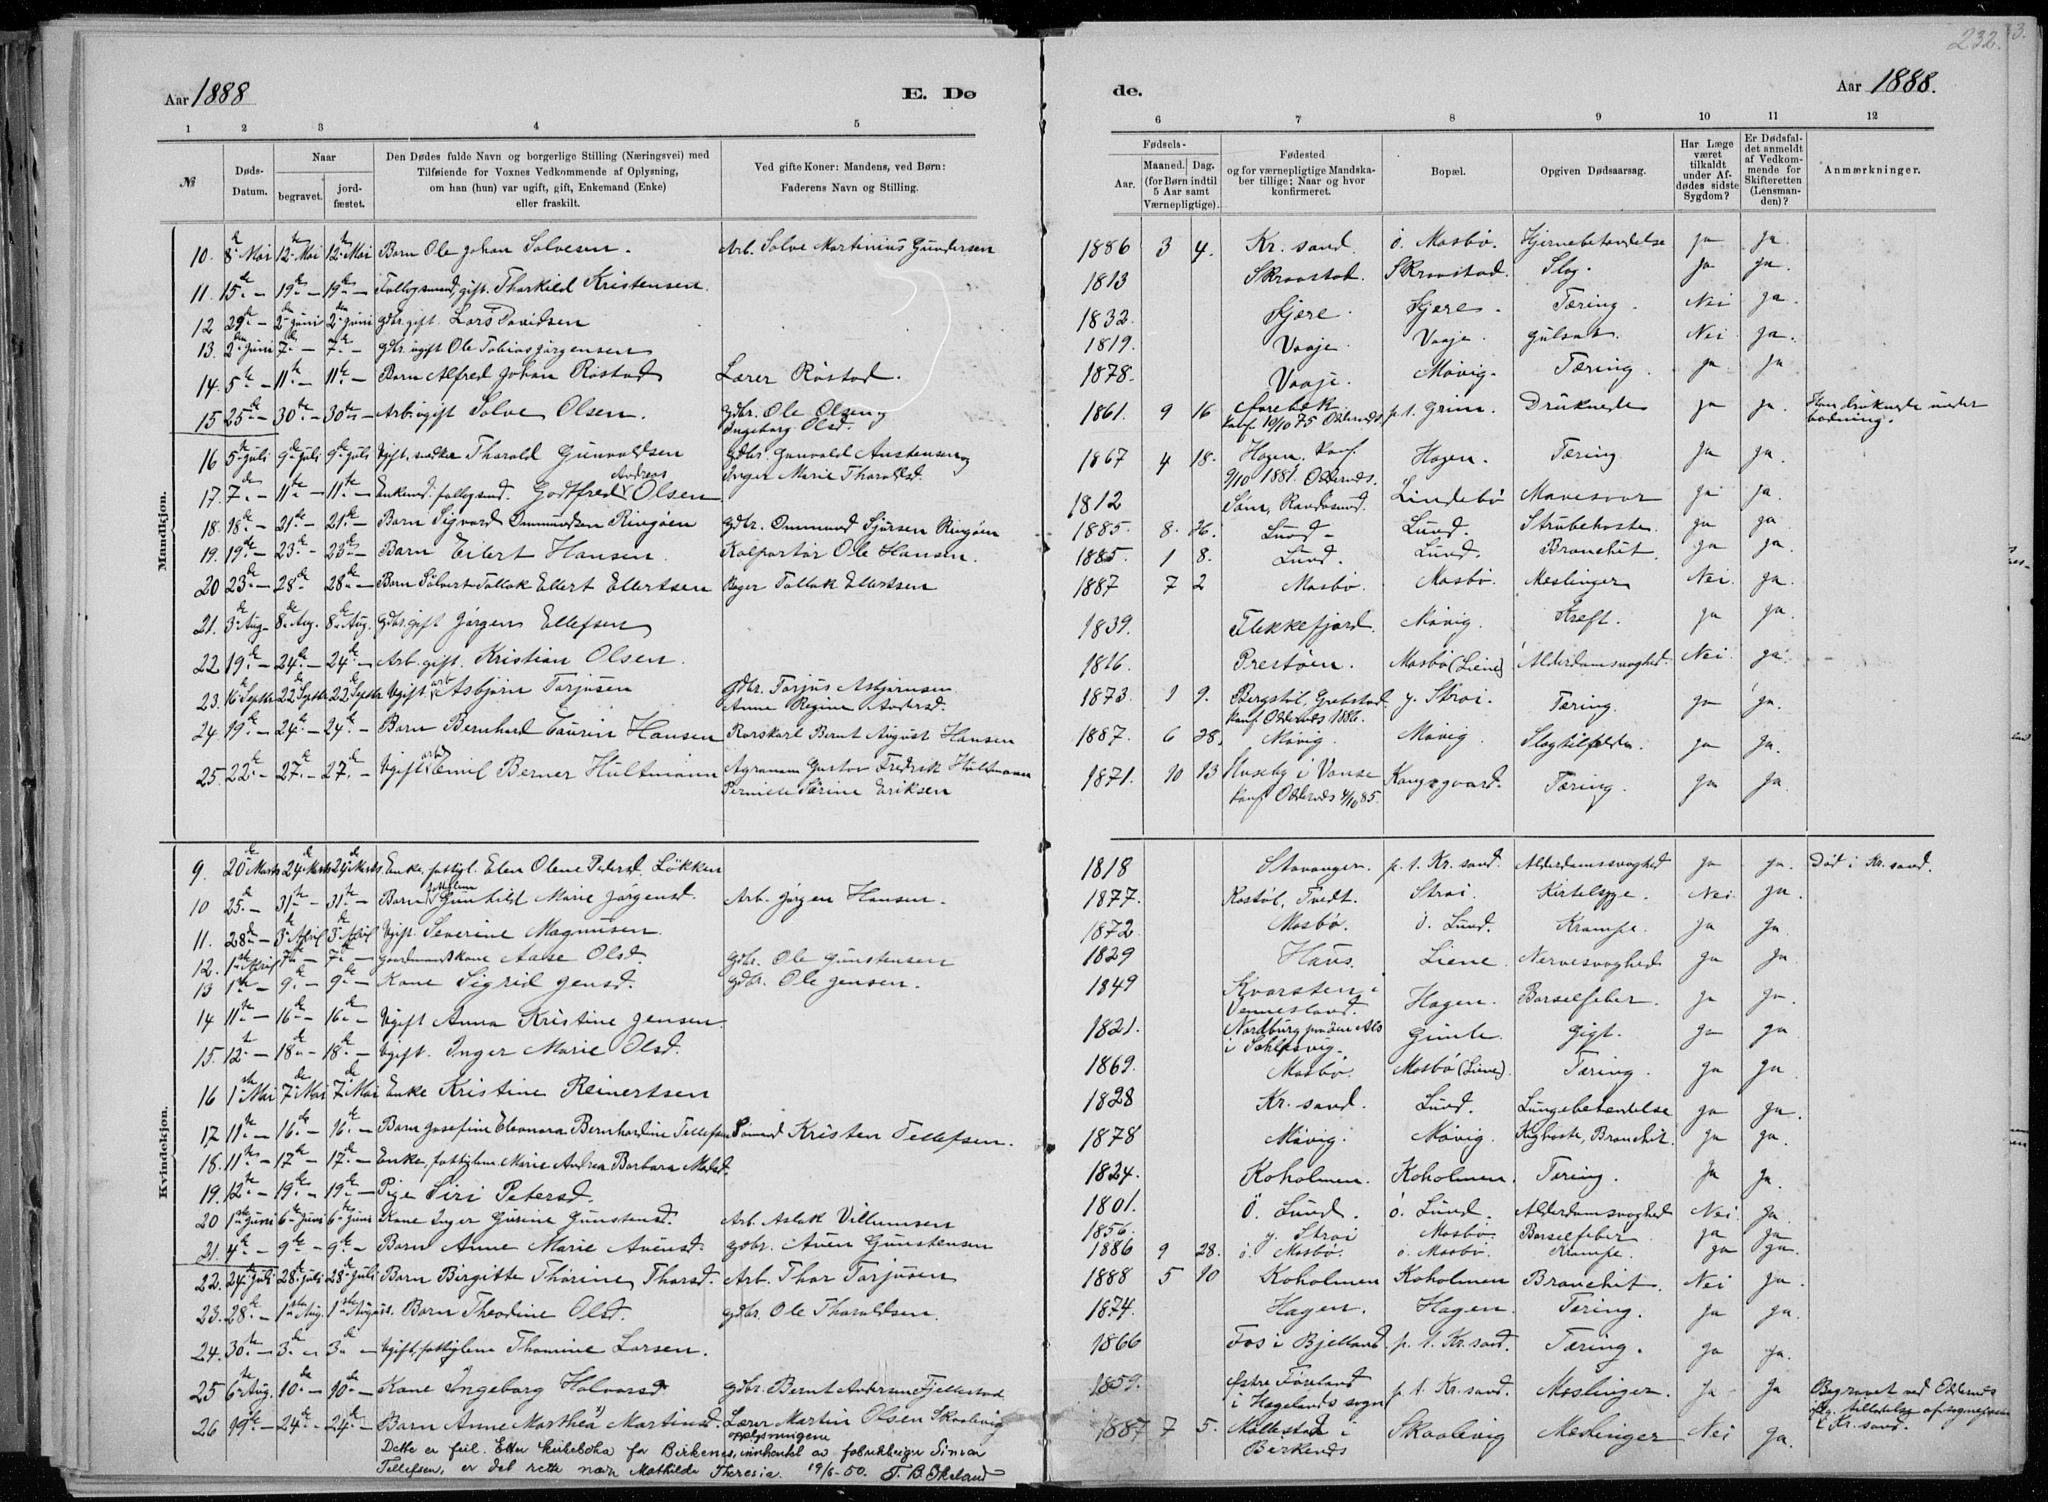 232. 3.
Aar 1888 E. Dø de. Aar 1888.
1 2 3 4 5 6 7 8 9 10 11 12
№ Døds-Datum. Naar begravet. jord-fæstet. Den Dødes fulde Navn og borgerlige Stilling (Næringsvei) med Tilføiende for Voxnes Vedkommende af Oplysning, om han (hun) var ugift, gift, Enkemand (Enke) eller fraskilt. Ved gifte Koner: Mandens, ved Børn: Faderens Navn og Stilling. Fødsels- Aar. Maaned. Dag. (for Børn indtil 5 Aar samt Værnepligtige). Fødested og for værnepligtige Mandskaber tillige: Naar og hvor konfirmeret. Bopæl. Opgiven Dødsaarsag. Har Læge været tilkaldt under Afdødes sidste Sygdom? Er Dødsfaldet anmeldt af Vedkommende for Skifteretten (Lensmanden)? Anmærkninger.
Mandkjøn.
10. 8de Mai 12te Mai 12te Mai Barn Ole Johan Solvesen. Arb. Solve Martinius Gundersen 1886 3 4. Kr. sand. ö. Mosbö. Hjernebetændelse ja ja.
11. 15de – 19de – 19de – Fattigmand, gift. Thorkild Kristensen. 1813 Skraastad. Skraastad. Slag. ja ja.
12 29de – 2den Juni 2den Juni gdbr. gift. Lars Davidsen 1832. Sjære. Sjære. Tæring. Nei ja.
13. 2den Juni 7de – 7de – gdbr. ugift Ole Tobias Jörgensen 1819. Vaaje. Vaaje. gulsot. Nei ja.
14. 5te – 11te – 11te – Barn Alfred Johan Röstad Lærer Röstad. 1878. Vaaje. Mövig. Tæring. ja. ja
15 25de – 30te – 30te – Arb. ugift Solve Olsen. gdbr. Ole Olsen og Ingeborg Olsd. 1861. 9 16 konf. 10/10 75 Oddernes p. t. Grim. Druknede ja ja. Han druknede under badning.
16 5te Juli 9de Juli 9de Juli Ugift, snedker Tharald Gunvaldsen Gdbr. Gunvald Austensen og Inger Marie Tharaldsd. 1867 4 18. Hagen. konf. 9/10 1881. Oddernes. Hagen. Tæring. ja ja.
17. 7de – 11te – 11te – Enkmd. fattigmd. Godtfred Andreas Olsen 1812 Som, Randøsund. Lindebö Mavesaar ja ja.
18. 18de – 21de – 21de – Barn Sigvard Ommundsen Ringöen gdbr. Ommund Sjursen Ringöen 1885. 8. 26. Lund – Lund. Strubehoste. ja ja
19. 19de – 23de – 23de – Barn Eilert Hansen. Kolportör Ole Hansen. 1885. 1 8. Lund. Lund. Bronchit. ja ja.
20 23de – 28de – 28de – Barn Sölvert Tallak Ellert Ellertsen Bager Tallak Ellertsen 1887 7 2 Mosbö. Mosbö. Meslinger Nei ja.
21. 3de Aug. 8de Aug. 8de Aug. gdbr. gift Jörgen Ellefsen 1839. Flekkefjord. Mövig. Kræft. ja ja.
22. 19de – 24de – 24de – Arb. gift. Kristian Olsen. 1816. Prestöen. Mosbö (Liene) Alderdomsvaghed. Nei. ja.
23. 16de Septbr 22de Septbr 22de Septbr Ugift arb. Asbjörn Torjusen Gdbr. Torjus Asbjörnsen. Anne Regine Andersd. 1873. 1 9. konf. Oddernes 1886. y. Strai. Tæring. ja ja.
24. 19de – 24de – 24de – Barn Bernhard Laurin Hansen Rorskarl Bernt August Hansen 1887. 6 28. Mövig. Mövig. Slagtilfælde. ja ja.
25. 22de – 27de – 27de – Ugift arb Emil Berner Hultmann Agronom Gustav Fredrik Hultmann Pernille Sörine Eriksen 1871. 10 13 Huseby i Vanse konf. Oddernes 4/10 85. Kongsgaard. Tæring. ja ja.
Kvindekjøn.
9. 20de Marts 24de Marts 24de Marts Enke, fattigl. Elen Olene Pedersd. Lökken 1818 Stavanger. p. t. Kr. sand. Alderdomssvaghed ja ja. Död i Kr. sand.
10 25de – 31te – 31te – Barn fattiglem Gunhild Marie Jörgensd. Arb. Jörgen Hansen. 1877. Rostöl, Tvedt. Strai. Kirtelsyge. Nei ja.
11. 28de – 3de April 3de April Ugift. Severine Magnusen. 1872. Mosbö. ö. Lund. Krampe. ja ja
12. 1ste April 7de – 7de – gaardmandskone Aase Olsd. gdbr. Ole Gunstensen 1829 Haus. Liene. Nervesvaghed ja ja.
13 1ste – 9de – 9de – Kone Sigrid Jensd. gdbr. Ole Jensen. 1849 Kvarsten i Vennesland. Hagen. Barselfeber. ja ja.
14 11te – 16de – 16de – Ugift Anna Kristine Jensen. 1821. Nordburg paa öen Als i Schlesvig. Gimle. Gigt. ja ja
15. 12te – 18de – 18de – Ugift. Inger Marie Olsd. 1869. Mosbö. Mosbö (Liene). Tæring. ja ja
16 1ste Mai 7de Mai 7de Mai Enke Kristine Reinertsen 1828 Kr. sand. Lund. Lungebetændelse ja ja.
17 11te – 16de – 16de – Barn Josefine Eleonora Bernhardine Tellefsen Sömand Kristen Tellefsen. 1878 Mövig. Mövig. Kighoste, Bronchit. ja ja.
18. 11te – 17de – 17de – Enke, fattiglem Marie Andrea Barbara Madsd. 1824. Koholmen. Koholmen. Tæring. ja ja.
19. 12te – 19de – 19de – Pige Siri Petersd. 1801. Ö. Lund. ö. Lund. Alderdomssvaghed Nei. ja.
20 1ste Juni 6te Juni 6te Juni Kone Inger Gurine Gunstensd. Arb. Aslak Villumsen 1856. y. Strai Mosbö. Barselfeber ja ja
21. 4de – 9de – 9de – Barn Anne Marie Auensd. gdbr. Auen Gunstensen 1886 9 28. ö. Mosbö. ö. Mosbö. Krampe. ja ja.
22. 24de Juli 28de Juli 28de Juli Barn Birgitte Thorine Thorsd. Arb. Thor Torjusen 1888 5 10 Koholmen Koholmen Bronchit. Nei ja.
23. 28de – 1ste Aug. 1ste August. Barn Theodine Olsd. gdbr. Ole Tharaldsen. 1874. Hagen. Hagen. Tæring. ja ja.
24. 30te – 3de – 3de – Ugift, fattiglem Thomine Larsen. 1866 Fos i Bjelland p. t. Kr. sand. Tæring. ja ja.
25 6te Aug. 10de – 10de – Kone Ingeborg Halvorsd. gdbr. Bernt Andersen Fjellestad 1859. Östre Föreland i Hægelands sogn p. t. Kr. sand. Meslinger. ja ja Begravet ved Oddernes i Kr. sand.
26 19de – 24de – 24de – Barn Anne Marthea Martinsd. Lærer Martin Olsen Skaalevig 1887 7 5. i Birkenes Skaalevig Meslinger Nei ja.
Dette er feil. Etter kirkeboka for Birkenes, opplysningene innhentet av fabrikkeier Simon
Tellefsen, er det rette navn Mathilde Theresia. 19/6-50. T. B. Ekeland